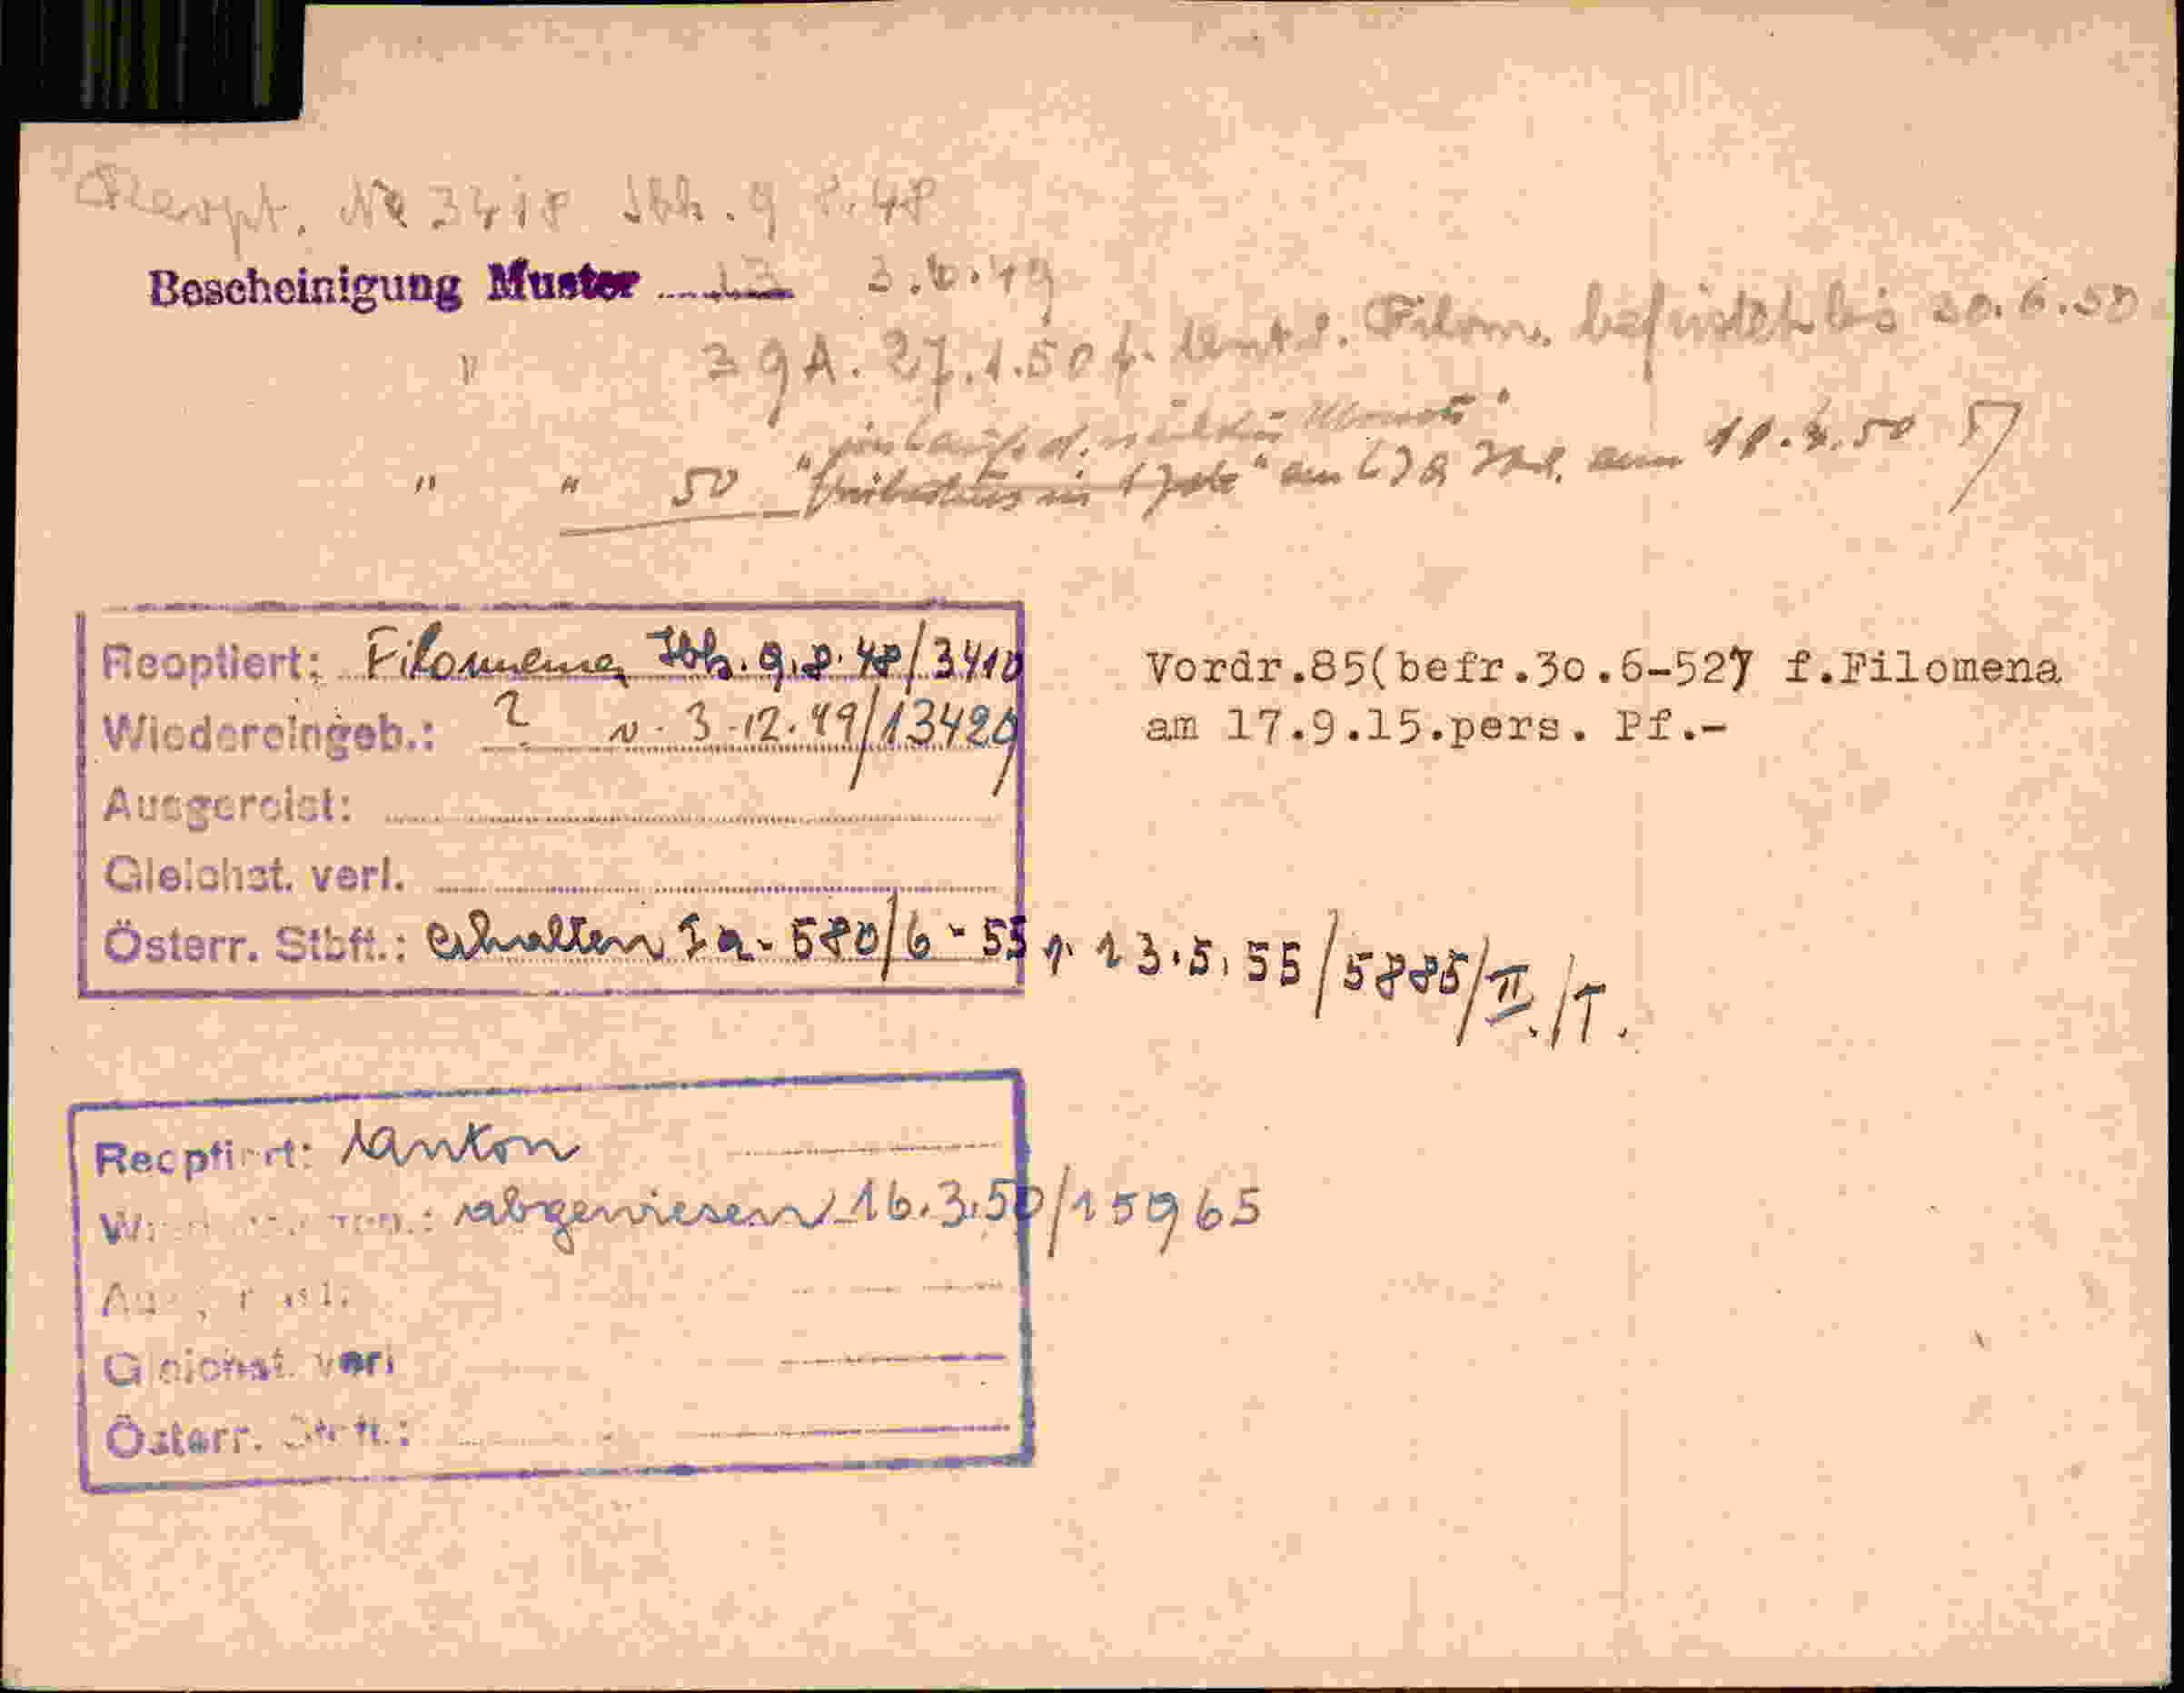 Reopt. No 3418 Ibk. 9.8.48
Bescheinigung Muster 13 3.6.49
" 39A. 27.1.50 f. Filom. befristet bis 30.6.50
" " 50 am 18.4.50
Reoptiert: Filomena Ibk. 9.8.48/3410
Wiedereingeb.: ? v. 3.12.49/13429
Ausgereist:
Gleichst. verl.
Österr. Stbft.: erhalten Ia-580/6-55 v. 13.5.55/5885/II./T.
Vordr.85(befr.30.6-527 f.Filomena
am 17.9.15.pers. Pf.-
Reoptiert: Anton
abgewiesen 16.3.50/15965
Gleichst. verl
Österr. Stbft.: